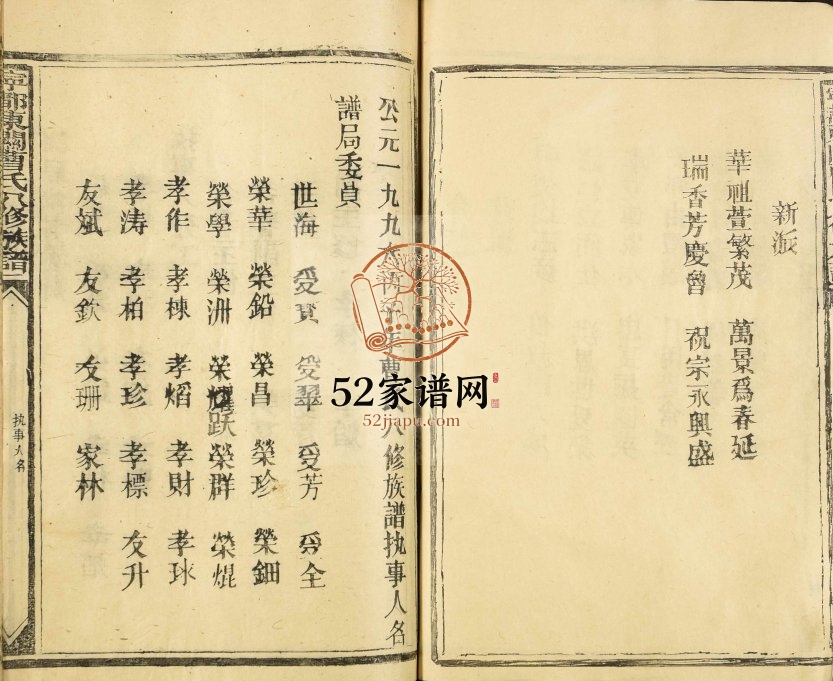 新派
華祖萱繁茂 萬景爲春延
瑞香芳慶曾 祝宗永興盛
公元一九九 曹氏八修族譜执事人名
譜局委員
世海 受寳 受翠 受芳 受全
榮華 榮鉛 榮昌 榮珍 榮鈿
榮學 榮洲 榮耀跃 榮群 榮焜
孝作 孝棟 孝熖 孝財 孝球
孝涛 孝柏 孝珍 孝標 友升
友斌 友欽 友珊 家林
寧都東關曹氏八修族譜
执事人名
52家谱网
52jiapu.com